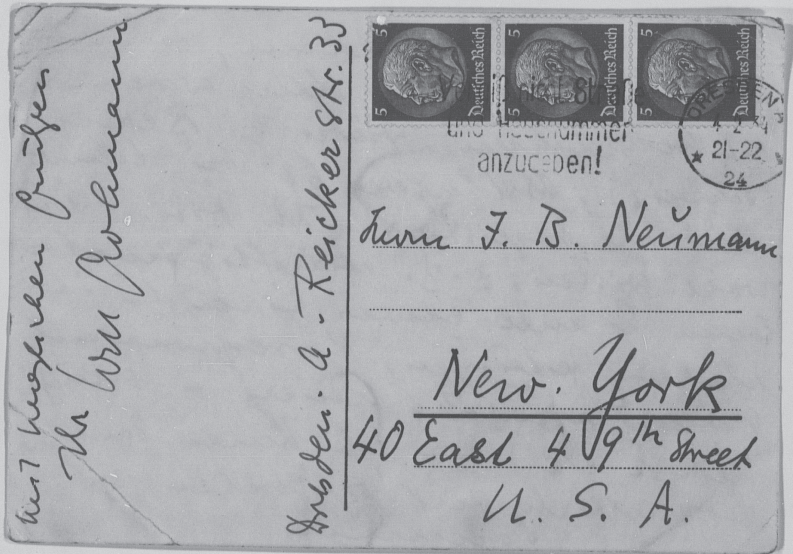 mit herzlichen Grüßen
Ihr Will Grohmann
Dresden. A - Reicker Str. 33
5 Deutsches Reich
5 Deutsches Reich
5 Deutsches Reich
nicht Straße
und Hausnummer
anzugeben!
DRESDEN
21-22
24
Herrn J. B. Neumann
New. York
40 East 49th Street
U. S. A.